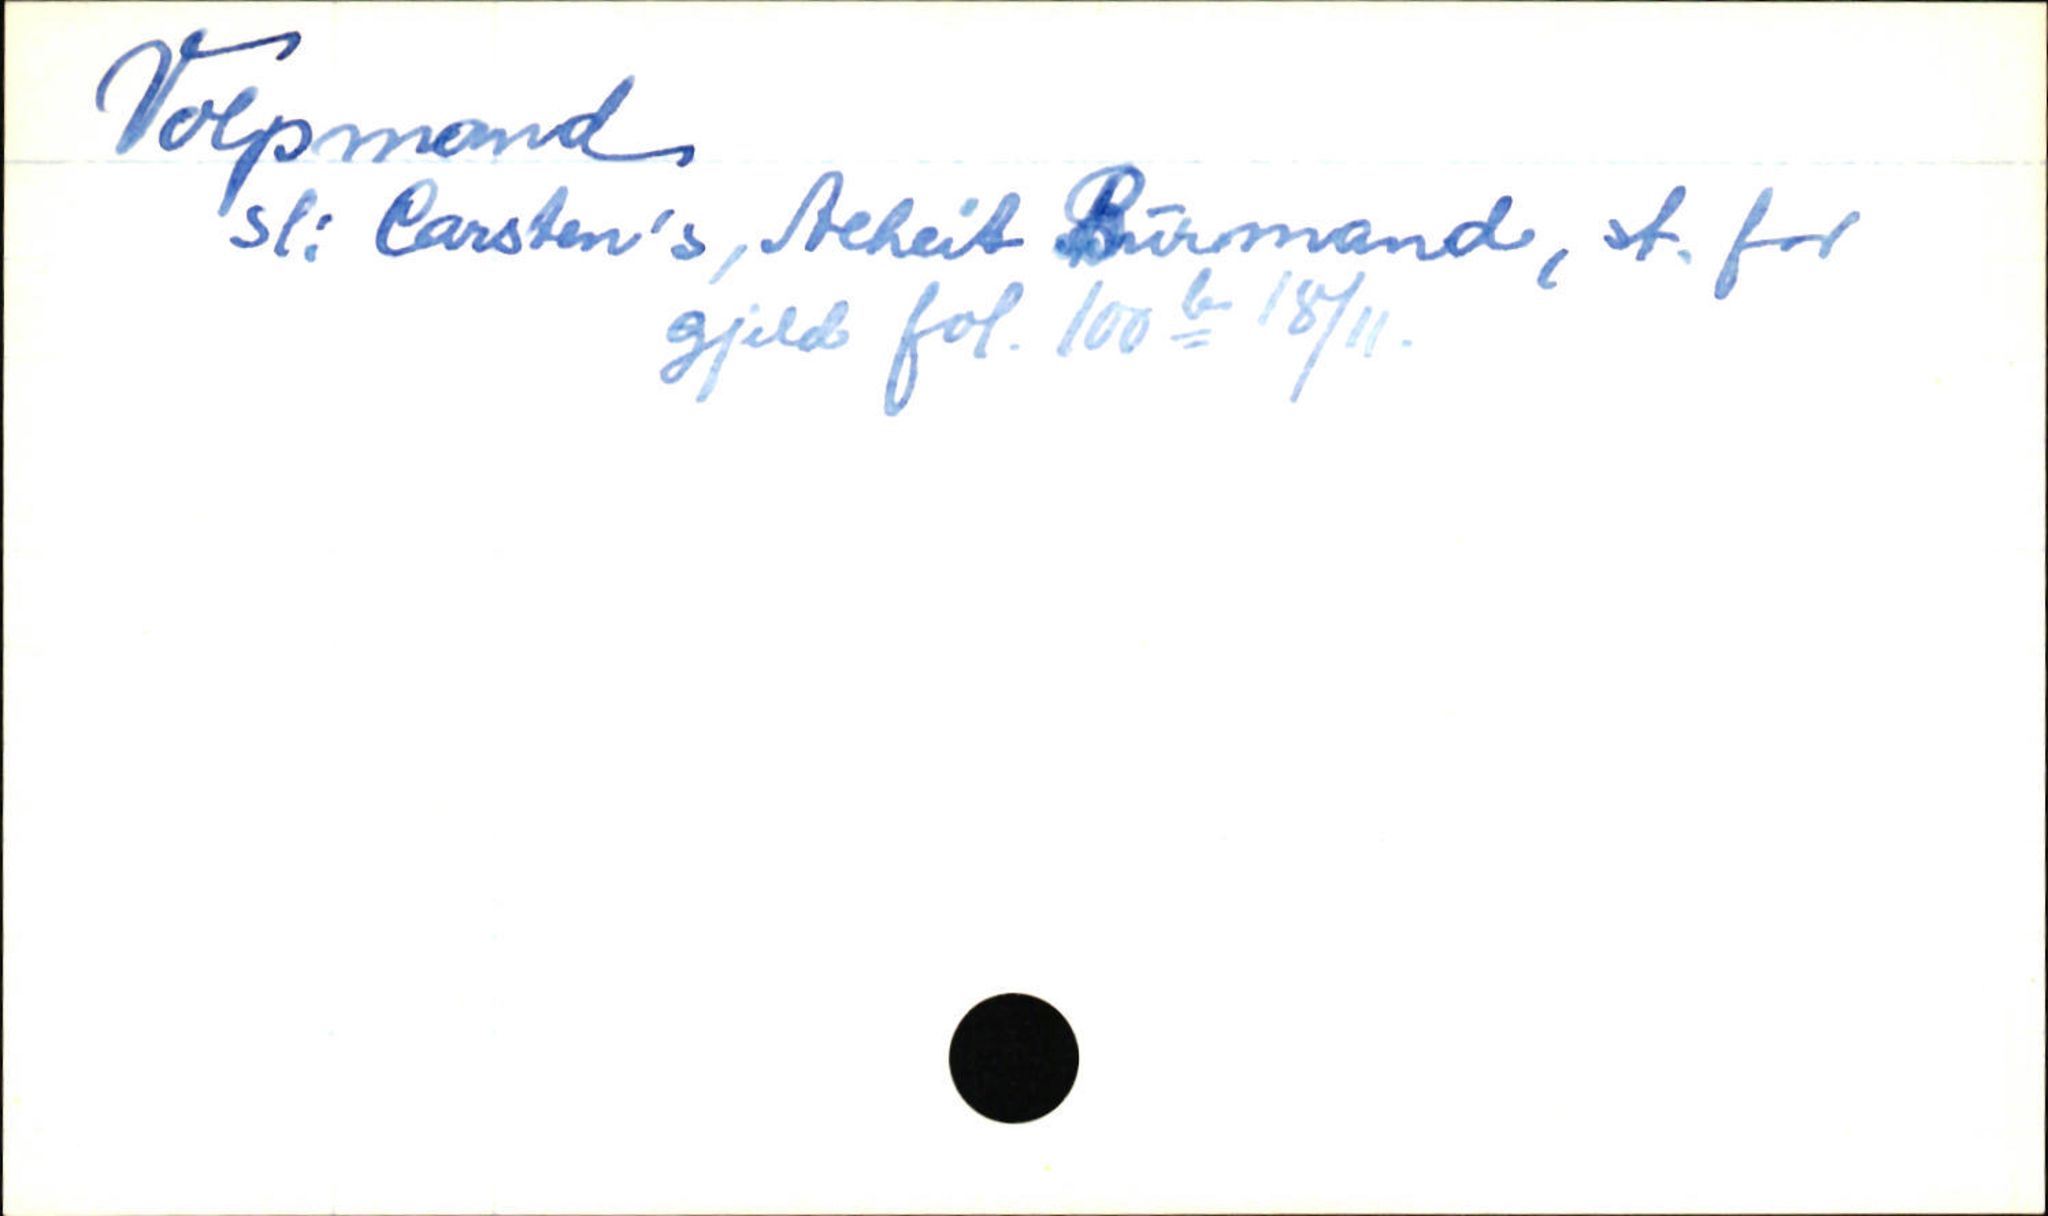 Volpmand
sl: Carsten's, Alheit Burmand, st. for
gjeld fol. 100 b 18/11.